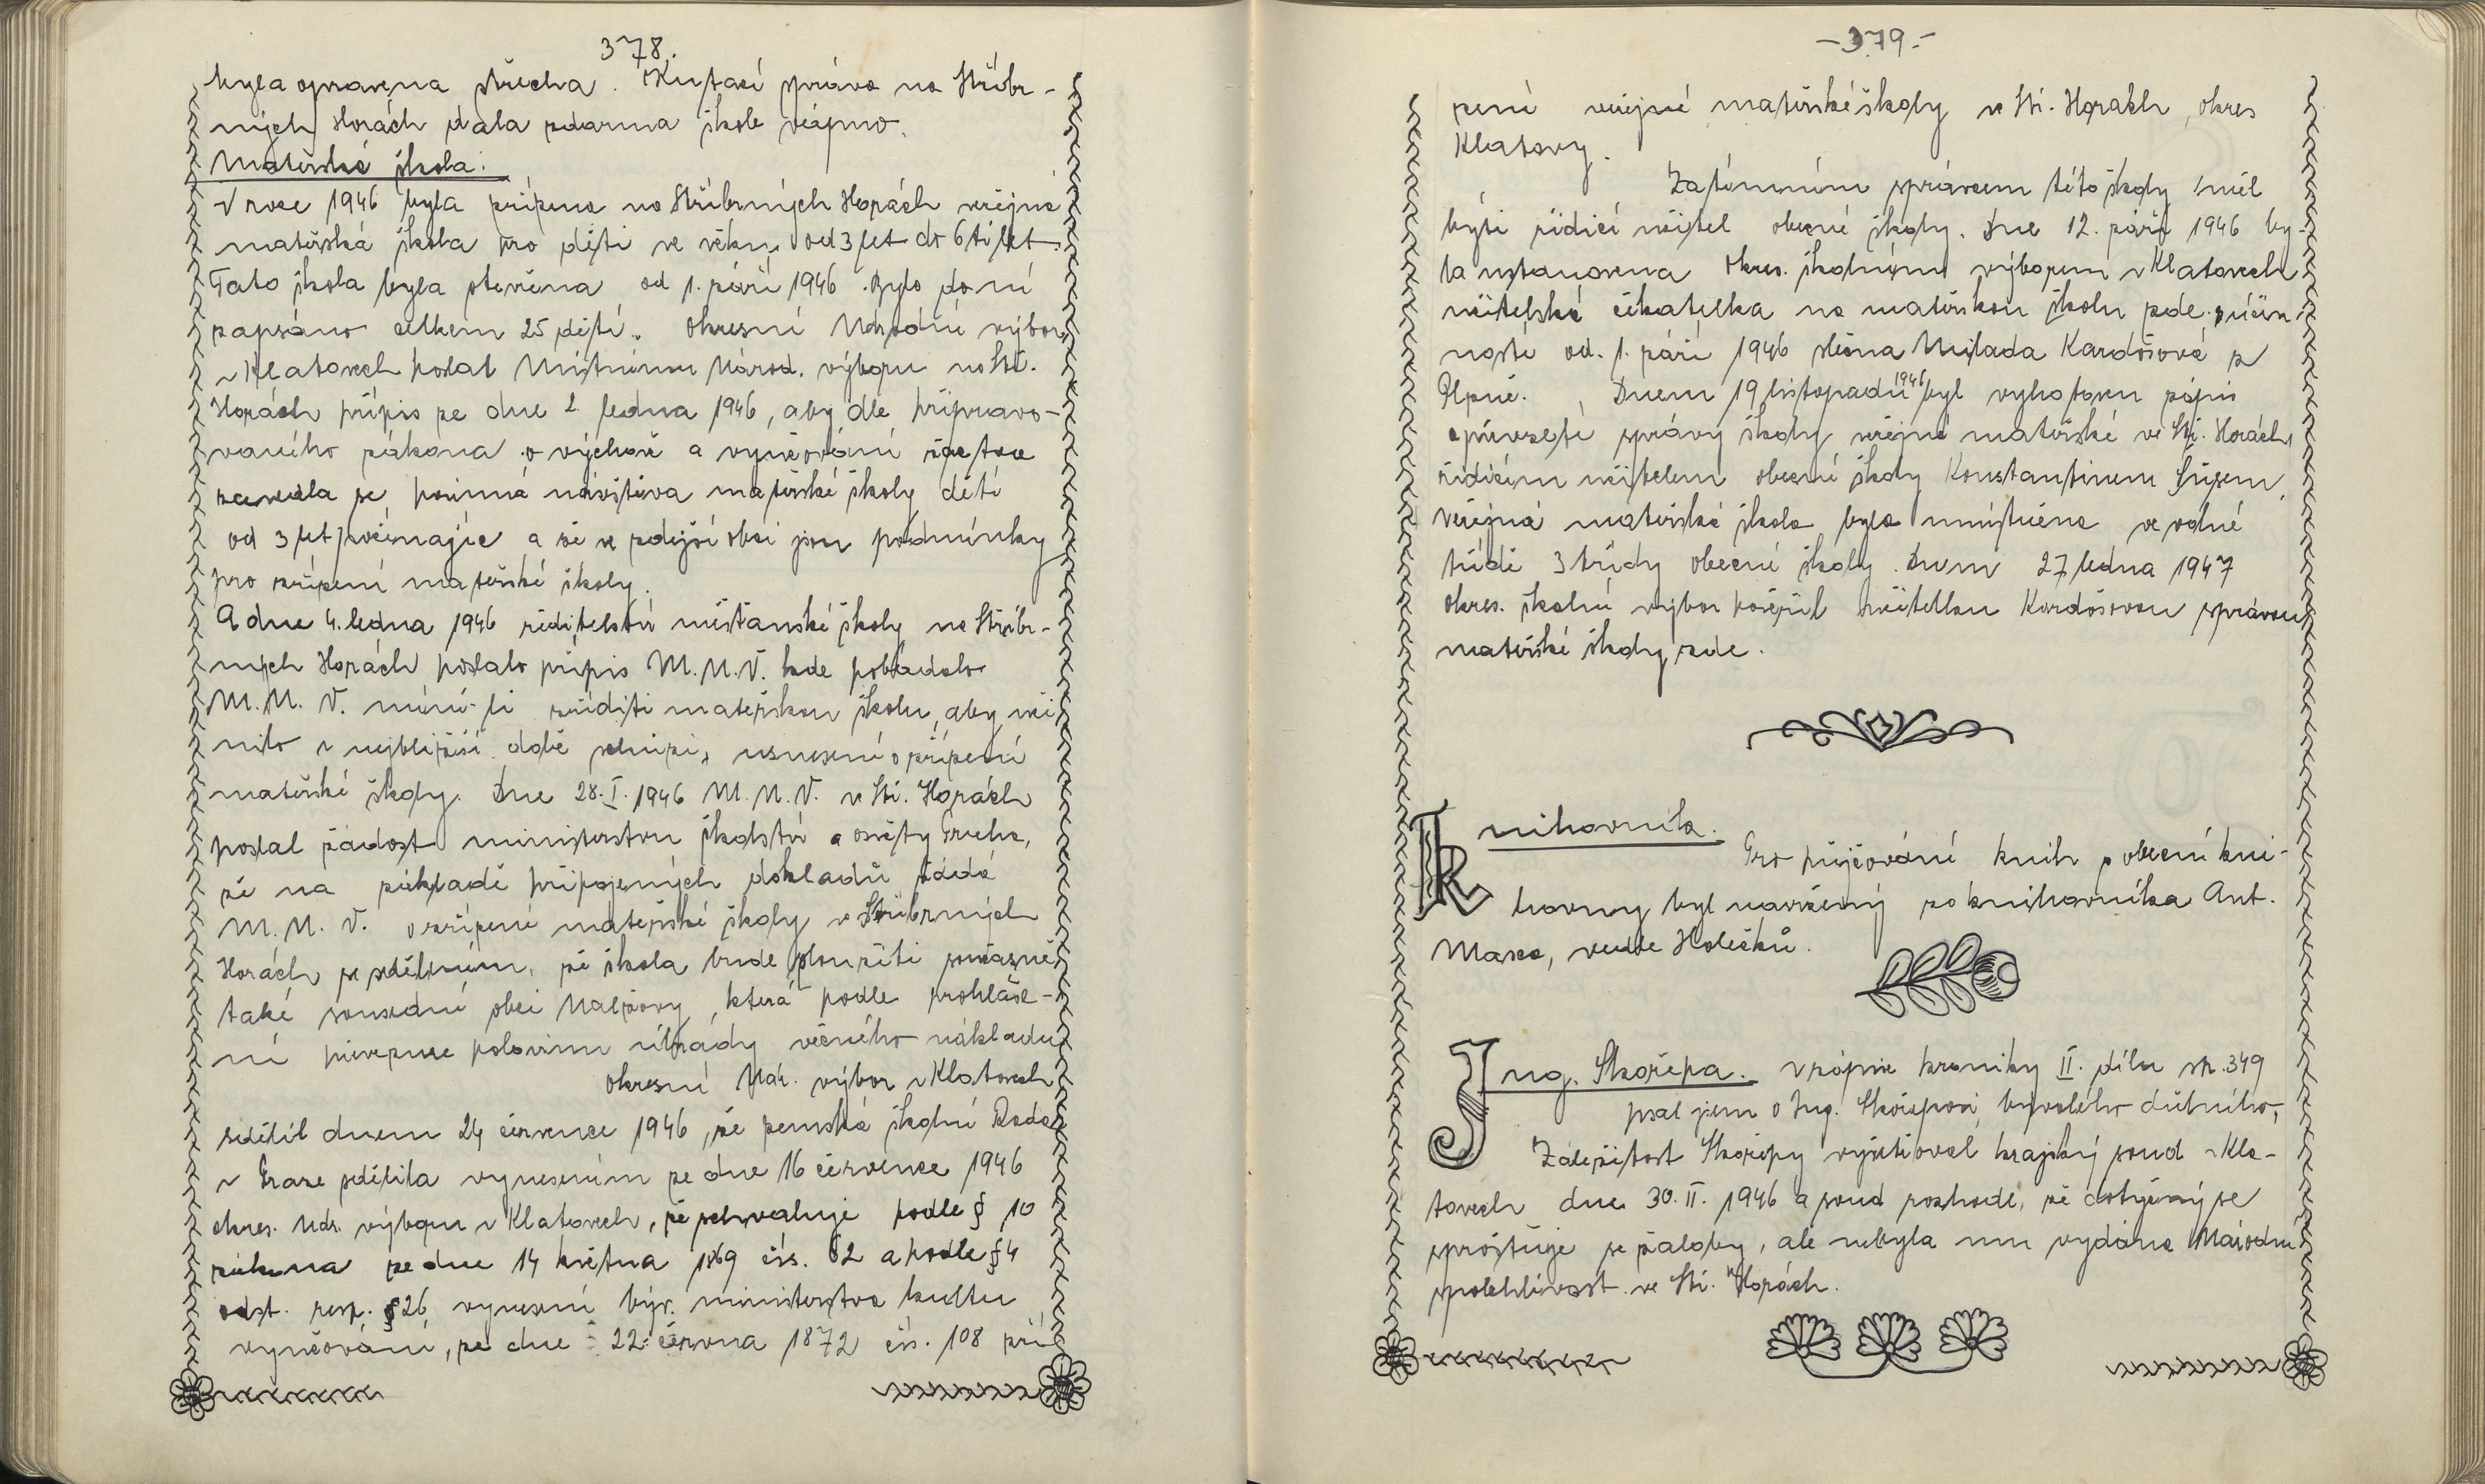 378.
byla opravena střecha. Kutací správa na Stříbr-
ných Horách dala zdarma škole vápno.
Mateřská škola.
V roce 1946 byla zřízena na Stříbrných Horách veřejná
mateřská škola pro děti ve věku od 3 let do 6ti let.
Tato škola byla otevřena od 1. září 1946. Bylo do ní
zapsáno celkem 25 dětí. Okresní Národní výbor
v Klatovech poslal Místnímu Národ. výboru na Stř.
Horách přípis ze dne 2. ledna 1946, aby dle připravo-
vaného zákona o výchově a vyučování
zavedla se povinná návštěva mateřské školy dětí
od 3 let počínajíc a že ve zdejší obci jsou podmínky
pro zřízení mateřské školy.
A dne 4. ledna 1946 ředitelství měšťanské školy na Stříbr-
ných Horách poslalo přípis M.N.V. kde požádalo
M.N.V. míní-li zříditi mateřskou školu, aby uči-
nilo v nejbližší době schůzi, usnesení o zřízení
mateřské školy. Dne 28.I.1946 M.N.V. ve Stř. Horách
poslal žádost ministerstvu školství a osvěty Praha,
že na základě připojených dokladů žádá
M.N.V. o zřízení mateřské školy v Stříbrných
Horách se sdělením, že škola bude sloužiti současně
také sousední obci Nalžovy, která podle prohláše-
ní převezme polovinu úhrady věcného nákladu.
Okresní Nár. výbor v Klatovech
sdělil dnem 24 července 1946, že zemská školní Rada
v Praze sdělila vynesením ze dne 16 července 1946
okres. nár. výboru v Klatovech, že schvaluje podle § 10
zákona ze dne 14 května 1869 čís. 62 a podle § 4
odst. resp. § 26 vynesení býv. ministerstva kultu
vyučování, ze dne 22. června 1872 čís. 108 zří-
-379.-
zení veřejné mateřské školy ve Stř. Horách, okres
Klatovy.
Zatímním správcem této školy měl
býti řídící učitel obecné školy. Dne 12. září 1946 by-
la ustanovena Okres. školním výborem v Klatovech
učitelská čekatelka na mateřskou školu zde s účin-
nosti od. 1. září 1946 slečna Milada Kardošová z
Plzně. Dnem 19 listopadu 1946 byl vyhotoven zápis
o převzetí správy školy veřejné mateřské ve Stř. Horách
řídícím učitelem obecné školy Konstantinem
veřejná mateřská škola byla umístněna ve volné
třídě 3 třídy obecné školy. Dnem 27 ledna 1947
okres. školní výbor pověřil učitelku Kardošovou správou
mateřské školy zde.
Knihovník.
Pro půjčování knih z obecní kni-
hovny byl navržený za knihovníka Ant.
vedle Holečků.
Ing. Skořepa. V zápise kroniky II. dílu str. 349
psal jsem o Ing. Skořepovi, bývalého důlního,
Záležitost Skořepy vyšetřoval krajský soud v Kla-
tovech dne 30.II.1946 a soud rozhodl, že dotyčný se
sprošťuje se žaloby, ale nebyla mu vydána Národní
spolehlivost ve Stř. Horách.